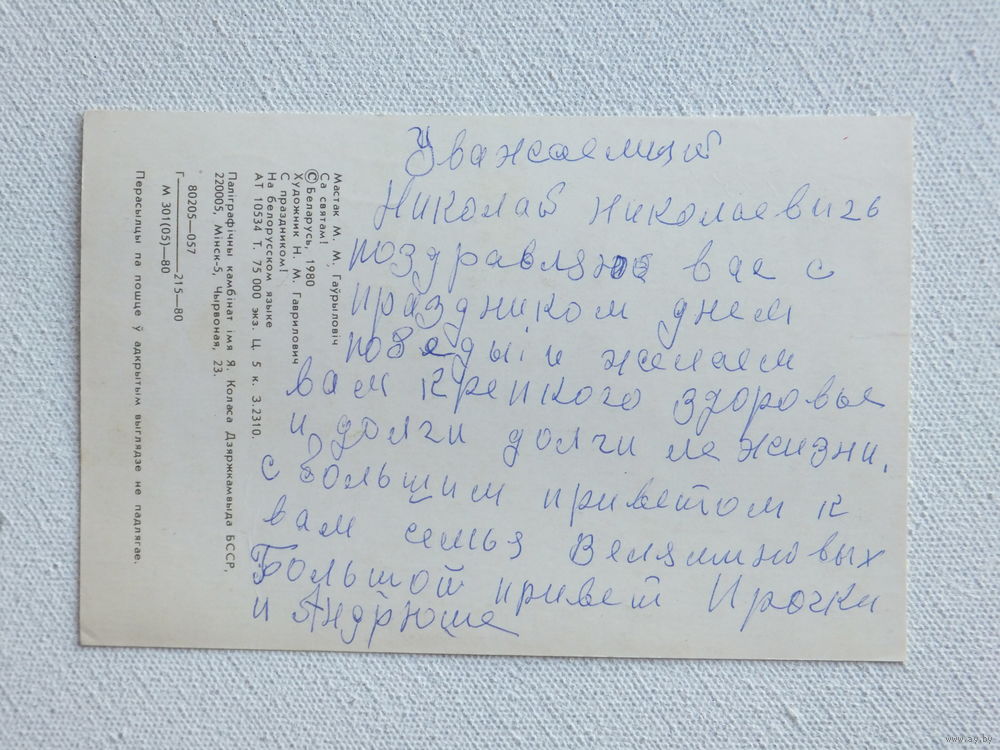 Уважаемий
Николай Николаевичь
поздравляю вас с
праздником днем
победы и желаем
вам крепкого здоровье
и долги долги ле жизни.
с большим приветом к
вам семья
Большой привет Ирочки
и Андрюше
Мастак М. М. Гаўрыловіч
Са святам!
© Беларусь, 1980
Художник Н. М. Гаврилович
С праздником!
На белорусском языке
АТ 10534 Т. 75 000 экз. Ц. 5 к. З.2310.
Паліграфічны камбінат імя Я. Коласа Дзяржкамвыда БССР,
220005, Мінск-5, Чырвоная, 23.
80205—057
Г———215—80
М 301(05)—80
Перасылцы па пошце ў адкрытым выглядзе не падлягае.
www.ay.by